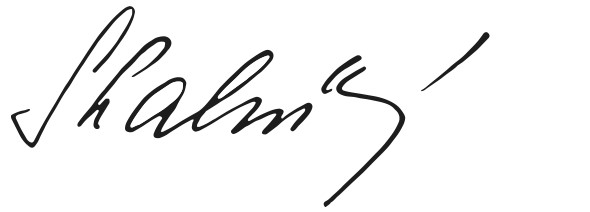 Skalnický